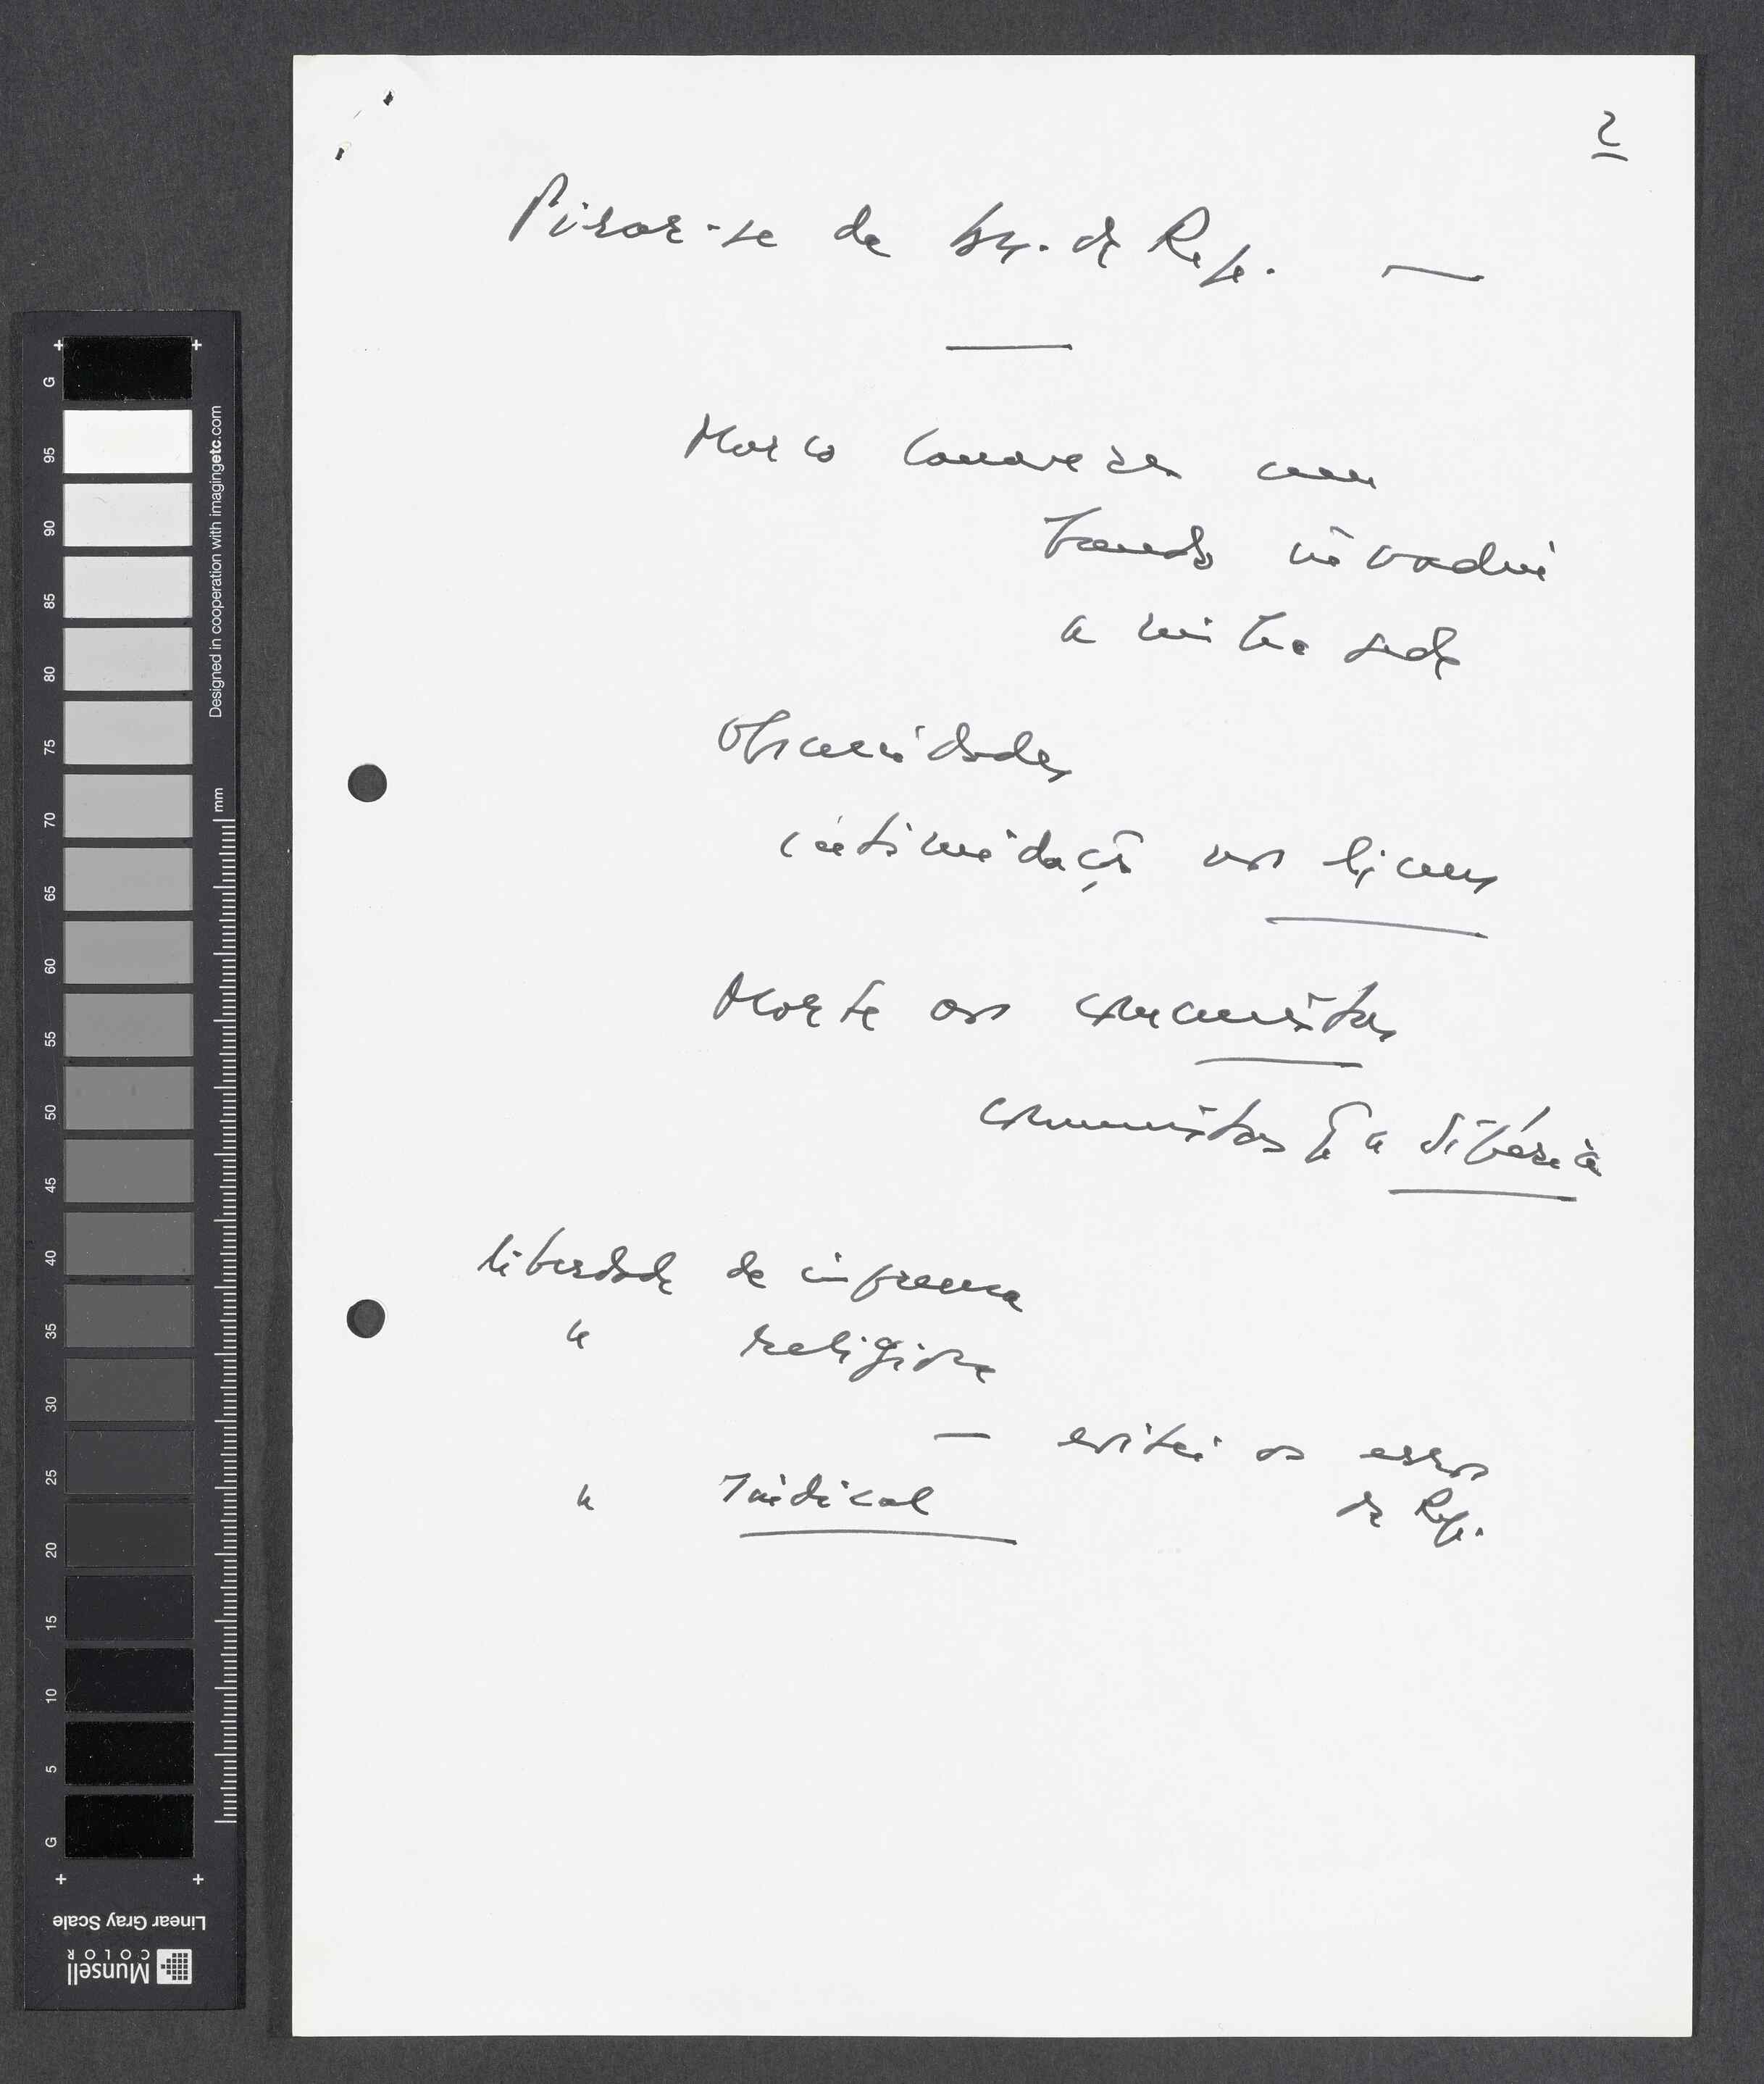 2
Pirar-se de
Marco Canavezes com
bando invadiu
a minha sede
Obscenidades
intimidação nos liceus
Morte aos comunistas
comunistas p a Sibéria
liberdade de imprensa
" religiosa
— evitei os erros
" sindical da Rep.
G 95 90 85 80 75 70 65 60 55 50 45 40 35 30 25 20 15 10 5 G
mm
Designed in cooperation with imagingetc.com
Linear Gray Scale
Munsell
COLOR